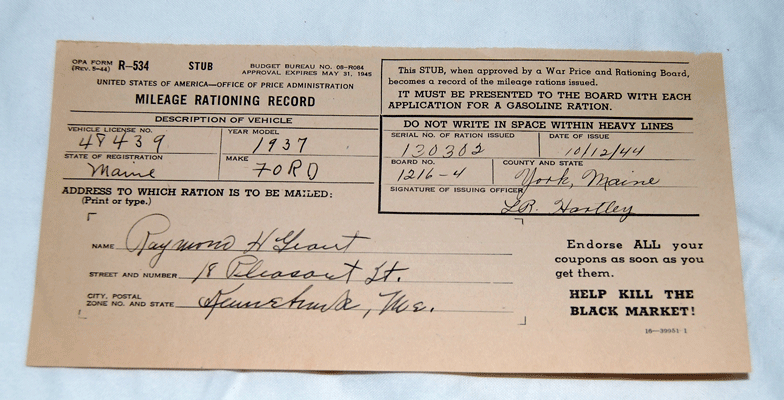 OPA FORM R-534 STUB BUDGET BUREAU NO. 08-R084
(REV. 5-44) APPROVAL EXPIRES MAY 31, 1945
UNITED STATES OF AMERICA—OFFICE OF PRICE ADMINISTRATION
MILEAGE RATIONING RECORD
DESCRIPTION OF VEHICLE
VEHICLE LICENSE NO. YEAR MODEL
48439 1937
STATE OF REGISTRATION MAKE
Maine FORD
ADDRESS TO WHICH RATION IS TO BE MAILED:
(Print or type.)
This STUB, when approved by a War Price and Rationing Board,
becomes a record of the mileage rations issued.
IT MUST BE PRESENTED TO THE BOARD WITH EACH
APPLICATION FOR A GASOLINE RATION.
DO NOT WRITE IN SPACE WITHIN HEAVY LINES
SERIAL NO. OF RATION ISSUED DATE OF ISSUE
130302 10/12/44
BOARD NO. COUNTY AND STATE
1216-4 York, Maine
SIGNATURE OF ISSUING OFFICER
L.R. Hartley
NAME Raymond H Grant
STREET AND NUMBER 18 Pleasant St.
CITY, POSTAL
ZONE NO. AND STATE Kennebunk, Me.
Endorse ALL your
coupons as soon as you
get them.
HELP KILL THE
BLACK MARKET!
16-39951-1